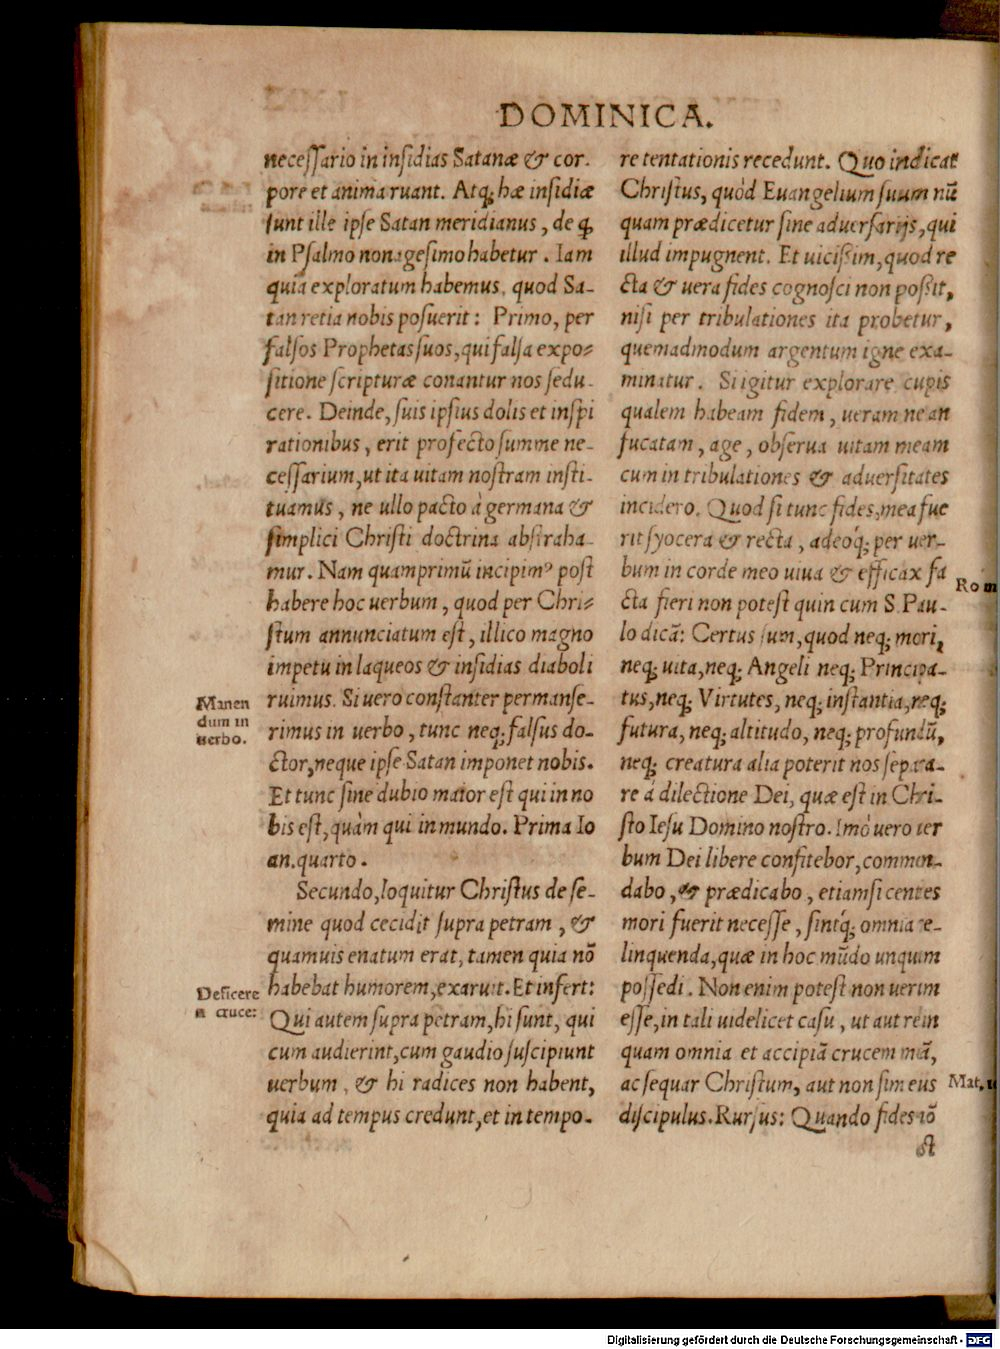 DOMINICA.
necessario in insidias Satanæ & cor.
pore et anima ruant. Atq; hæ insidiæ
sunt ille ipse Satan meridianus, de q
in Psalmo nonagesimo habetur. Iam
quia exploratum habemus, quod Sa-
tan retia nobis posuerit: Primo, per
falsos Prophetas suos, qui falsa expo-
sitione scripturæ conantur nos sedu-
cere. Deinde, suis ipsius dolis et inspi
rationibus, erit profecto summe ne-
cessarium, ut ita uitam nostram insti-
tuamus, ne ullo pacto à germana &
simplici Christi doctrina abstraha-
mur. Nam quamprimū incipimꝰ post
habere hoc uerbum, quod per Chri-
stum annunciatum est, illico magno
impetu in laqueos & insidias diaboli
ruimus. Si uero constanter permanse-
rimus in uerbo, tunc neq; falsus do-
ctor, neque ipse Satan imponet nobis.
Et tunc sine dubio maior est qui in no
bis est, quàm qui in mundo. Prima Io
an. quarto.
Secundo, loquitur Christus de se-
mine quod cecidit supra petram, &
quamuis enatum erat, tamen quia nō
habebat humorem, exaruit. Et infert:
Qui autem supra petram, hi sunt, qui
cum audierint, cum gaudio suscipiunt
uerbum, & hi radices non habent,
quia ad tempus credunt, et in tempo-
Manen
dum in
uerbo.
Deficere
n cruce:
re tentationis recedunt. Quo indicat
Christus, quòd Euangelium suum nū
quam prædicetur sine aduersarijs, qui
illud impugnent. Et uicissim, quod re
cta & uera fides cognosci non possit,
nisi per tribulationes ita probetur,
quemadmodum argentum igne exa-
minatur. Si igitur explorare cupis
qualem habeam fidem, ueram ne an
fucatam, age, obserua uitam meam
cum in tribulationes & aduersitates
incidero. Quod si tunc fides, mea fue
rit syncera & recta, adeoq́; per uer-
bum in corde meo uiua & efficax fa
cta fieri non potest quin cum S. Pau-
lo dicā: Certus sum, quod neq; mori,
neq; uita, neq; Angeli neq; Principa-
tus, neq; Virtutes, neq; instantia, neq;
futura, neq; altitudo, neq; profundū,
neq; creatura alia poterit nos separa-
re à dilectione Dei, quæ est in Chri-
sto Iesu Domino nostro. Imò uero uer
bum Dei libere confitebor, commen-
dabo, & prædicabo, etiamsi centes
mori fuerit necesse, sintq́; omnia re-
linquenda, quæ in hoc mūdo unquam
possedi. Non enim potest non uerum
esse, in tali uidelicet casu, ut aut rem
quam omnia et accipiā crucem meā,
ac sequar Christum, aut non sim eus
discipulus. Rursus: Quando fides nō
st
Rom
Mat.
Digitalisierung gefördert durch die Deutsche Forschungsgemeinschaft - DFG